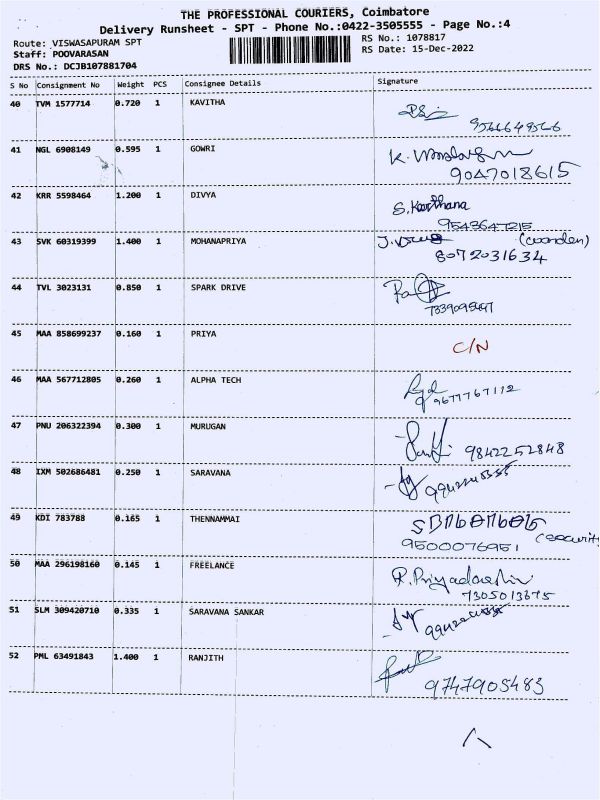 THE PROFESSIONAL COURIERS, Coimbatore
Delivery Runsheet - SPT - Phone No.:0422-3505555 - Page No.:4
Route: VISWASAPURAM SPT
RS No.: 1078817
Staff: POOVARASAN
RS Date: 15-Dec-2022
DRS No.: DCJB107881704
S No Consignment No Weight PCS Consignee Details Signature
40 TVM 1577714 0.720 1 KAVITHA
41 NGL 6908149 0.595 1 GOWRI
9047018615
42 KRR 5598464 1.200 1 DIVYA
43 SVK 60319399 1.400 1 MOHANAPRIYA
8072031634
44 TVL 3023131 0.850 1 SPARK DRIVE
45 MAA 858699237 0.160 1 PRIYA
C/N
46 MAA 567712805 0.260 1 ALPHA TECH
9677767112
47 PNU 206322394 0.300 1 MURUGAN
9842252848
48 IXM 502686481 0.250 1 SARAVANA
49 KDI 783788 0.165 1 THENNAMMAI
9500076951
50 MAA 296198160 0.145 1 FREELANCE
R. Priyadarshini
7305013675
51 SLM 309420710 0.335 1 SARAVANA SANKAR
52 PML 63491843 1.400 1 RANJITH
9747905483